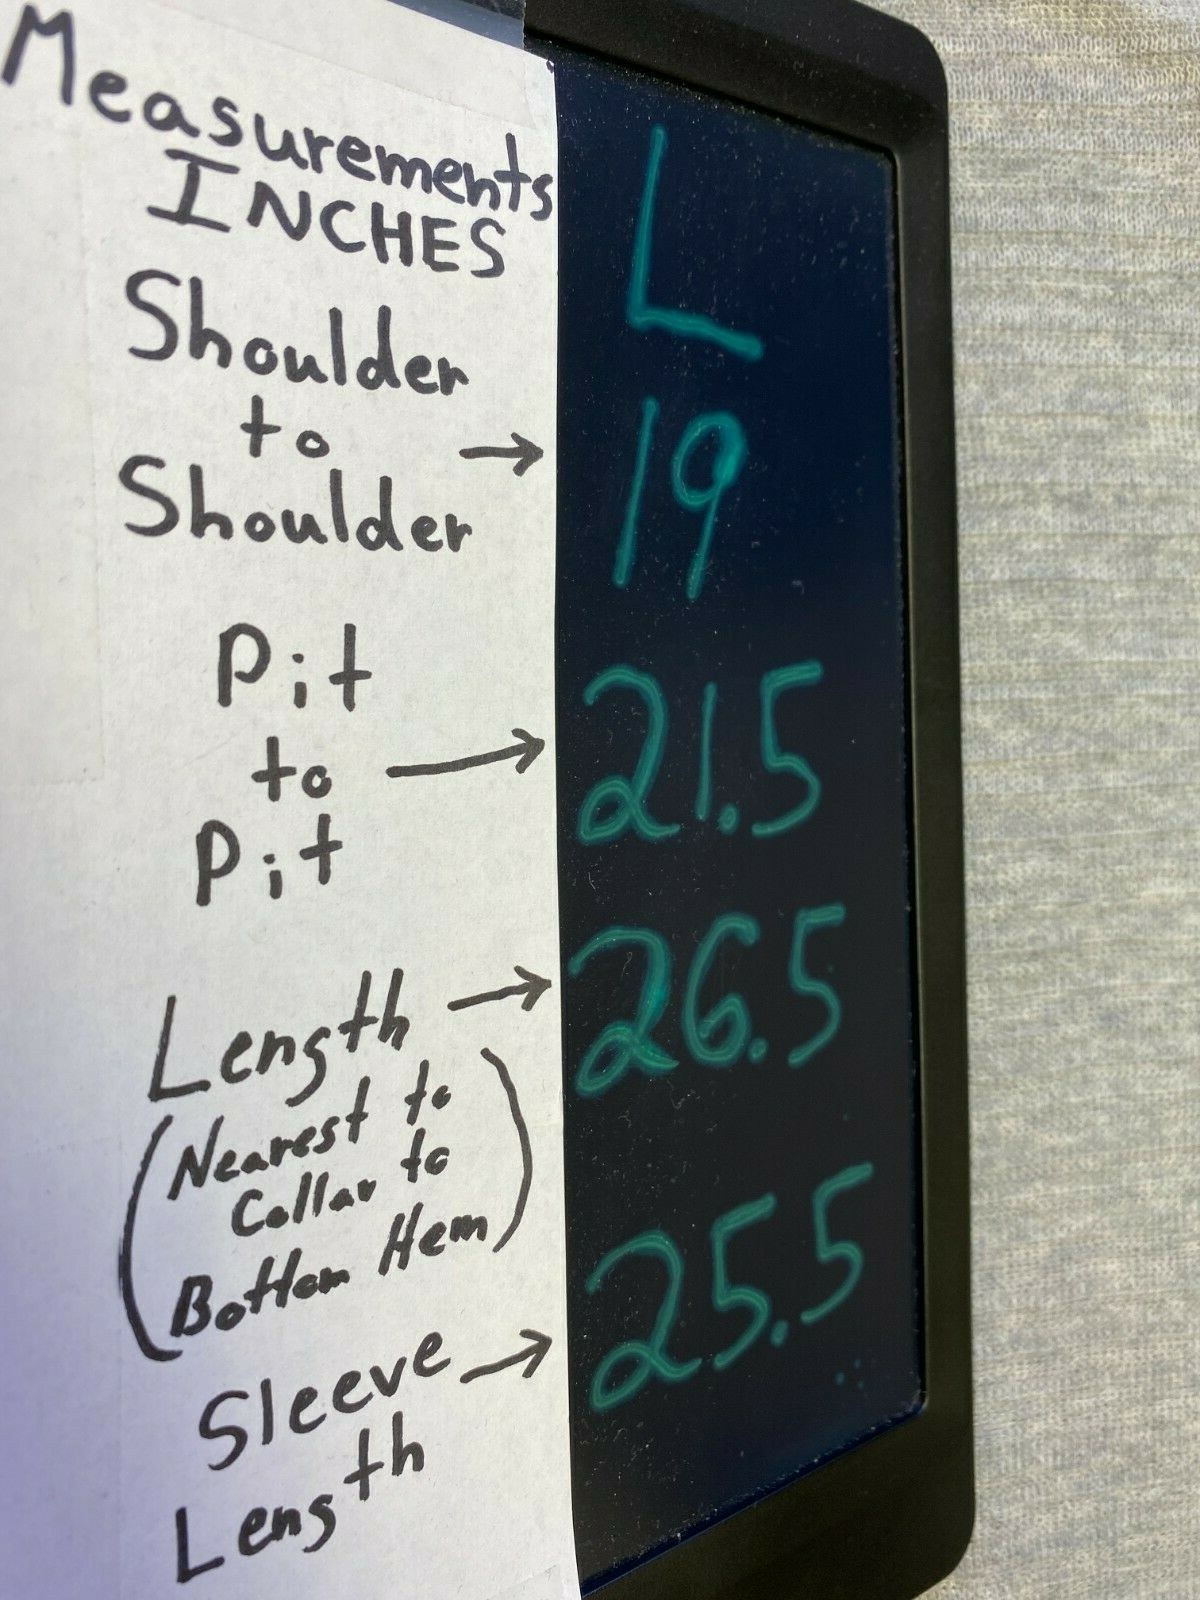 Measurements
INCHES
L
Shoulder
to → 19
Shoulder
Pit
to → 21.5
Pit
Length → 26.5
(Nearest to
Collar to
Bottom Hem)
Sleeve → 25.5
Length